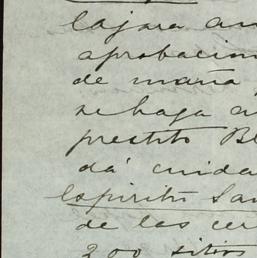 lajara an
aprobacion
de maña
se haga a
prestito Bl
dá cuida
Espiritu San
de las cer
200 sitios